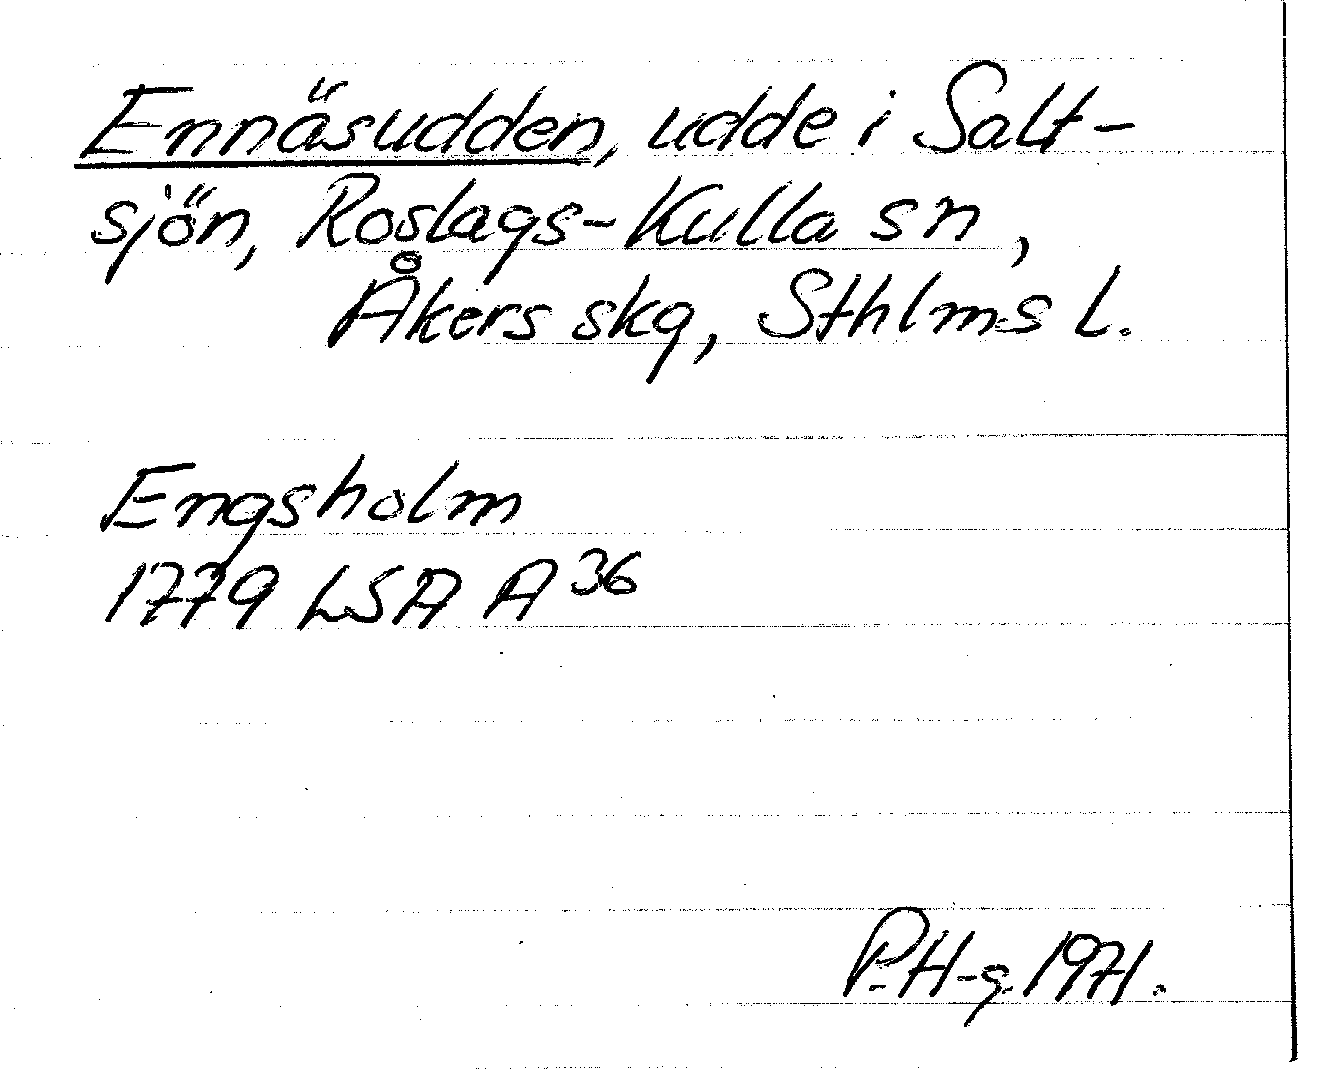 Ennäsudden, udde i Salt-
sjön, Roslags-Kulla sn,
Åkers skg, Sthlms l.
Engsholm
1779 LSA A 36
P.H-g. 1971.